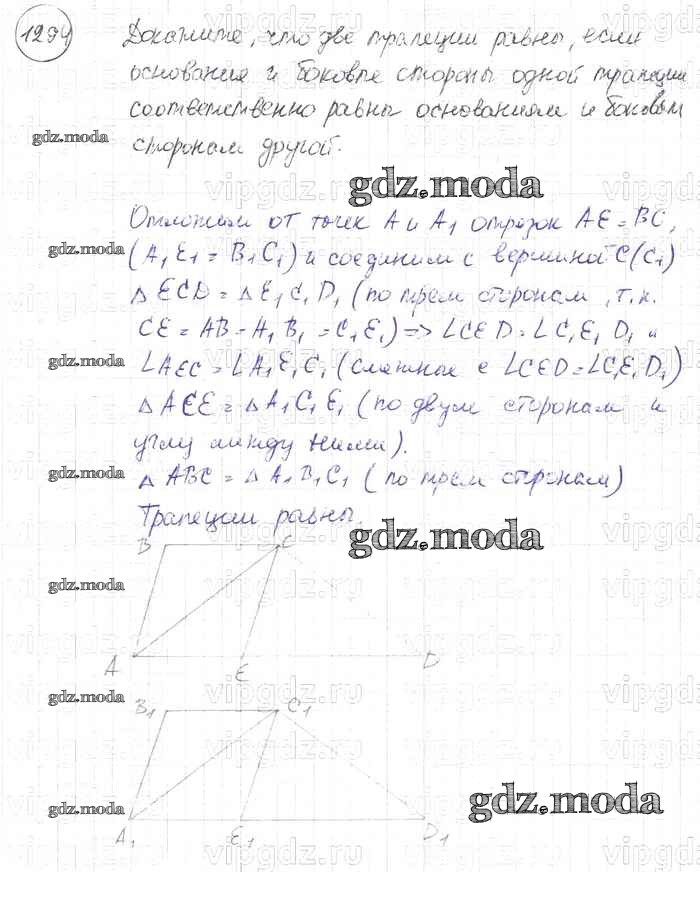 1294
Докажите, что две трапеции равны, если
основания и боковые стороны одной трапеции
соответственно равны основаниям и боковым
gdz.moda
сторонам другой.
gdz.moda
Отложим от точек A и A1 отрезок AE = BC,
gdz.moda
(A1E1 = B1C1) и соединим с вершиной C(C1)
△ ECD = △ E1C1D1 (по трем сторонам, т.к.
CE = AB = A1B1 = C1E1) => ∠CED = ∠C1E1D1 и
gdz.moda
∠AEC = ∠A1E1C1 (смежные с ∠CED = ∠C1E1D1)
△ ACE = △ A1C1E1 (по двум сторонам и
углу между ними).
gdz.moda
△ ABC = △ A1B1C1 (по трем сторонам)
Трапеции равны.
gdz.moda
B C
gdz.moda
A E D
gdz.moda
B1 C1
gdz.moda
gdz.moda
A1 E1 D1
vipgdz.ru